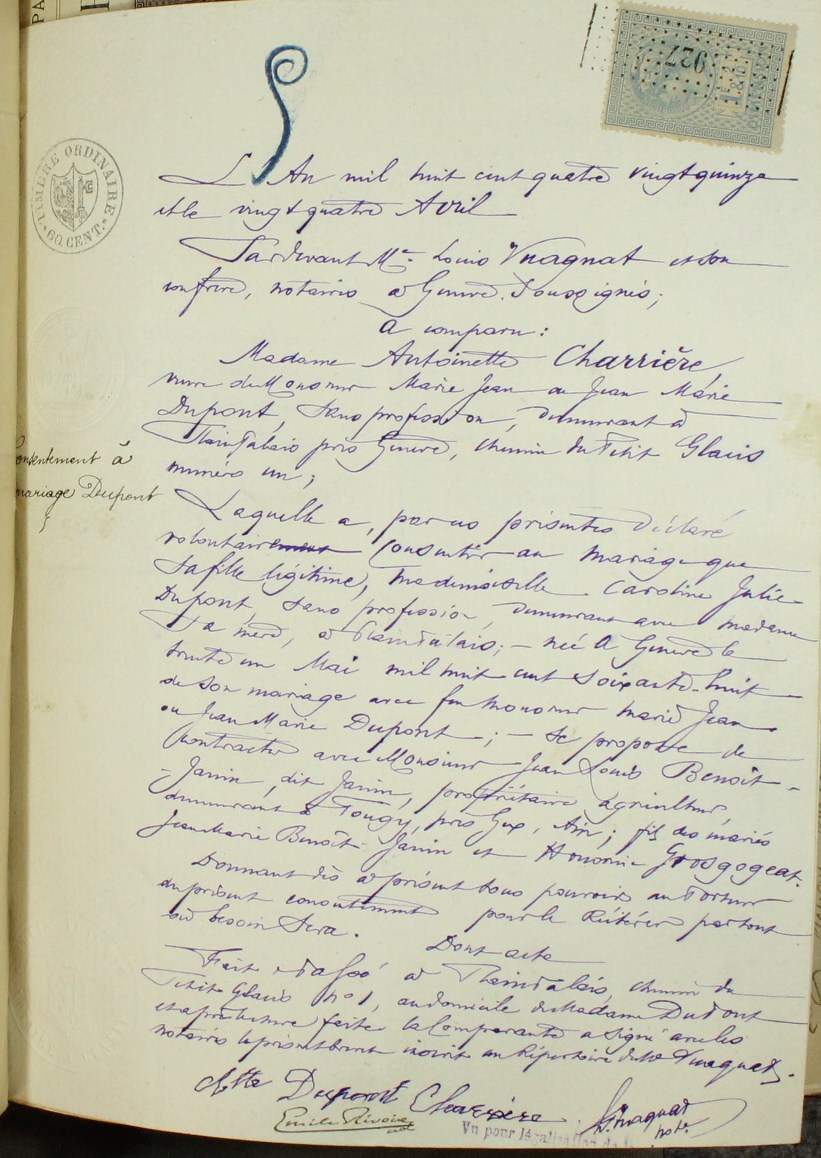 TIMBRE ORDINAIRE
60 CENT.
927
L'An mil huit cent quatre vingt quinze
et le vingt quatre Avril
Pardevant Me. Louis Vuagnat et son
confrère, notaires à Genève soussignés;
A comparu:
Madame Antoinette Charrière,
veuve de Monsieur Marie Jean ou Jean Marie
Dupont, sans profession, demeurant à
Plainpalais près Genève, chemin du Petit Glacis
numéro un;
Consentement à
mariage Dupont
Laquelle a, par ces présentes déclaré
volontairement consentir au mariage que
sa fille légitime, mademoiselle Caroline Julie
Dupont, sans profession, demeurant avec madame
sa mère, à Plainpalais; - née à Genève le
trente un Mai mil huit cent soixante-huit
de son mariage avec feu Monsieur Marie Jean
ou Jean Marie Dupont; - se propose de
contracter avec Monsieur Jean Louis Benoit-
- Janin, dit Janin, propriétaire agriculteur,
demeurant à Tougy, près Gex, Ain; fils des mariés
Jean Marie Benoit-Janin et Honorine Grosgogeat.
Donnant dès à présent tous pouvoirs au Porteur
du présent consentement pour le Réitérer partout
où besoin sera.
Dont acte
Fait et Passé à Plainpalais, chemin du
Petit Glacis no 1, au domicile de Madame Dupont
et après lecture faite la Comparante a signé avec les
notaires le présent brevet inscrit au Répertoire de Me Vuagnat.
Atte Dupont Charrière
Emile Rivoire
not
L. Vuagnat
note.
Vu pour légalisation de la